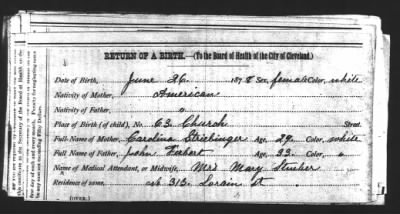 RETURN OF A BIRTH.—(To the Board of Health of the City of Cleveland.)
Date of Birth, June 26. 187 Sex, female Color, white
Nativity of Mother, American
Nativity of Father, "
Place of Birth (of child), No. 63. Church Street.
Full Name of Mother, Carolina Age, 29. Color, white
Full Name of Father, John Herbert Age, 33. Color, "
Name of Medical Attendant, or Midwife, Mrs Mary
Residence of same, 313. Lorain St
(OVER.)